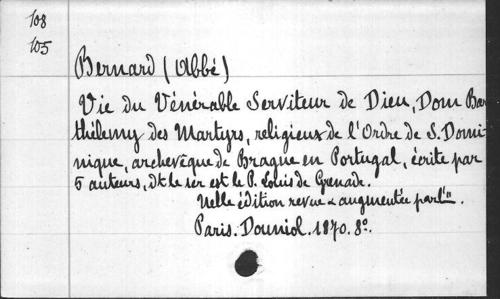 108
105
Bernard (Abbé)
Vie du Vénérable Serviteur de Dieu, Dom Bar
thélemy des Martyrs, religieux de l'Ordre de S. Domi-
nique, archevêque de Brague en Portugal, écrite par
5 auteurs, dt le 1er est le P. Louis de Grenade.
Nelle édition revue & augmentée par l'"
Paris. Douniol. 1870. 8º.